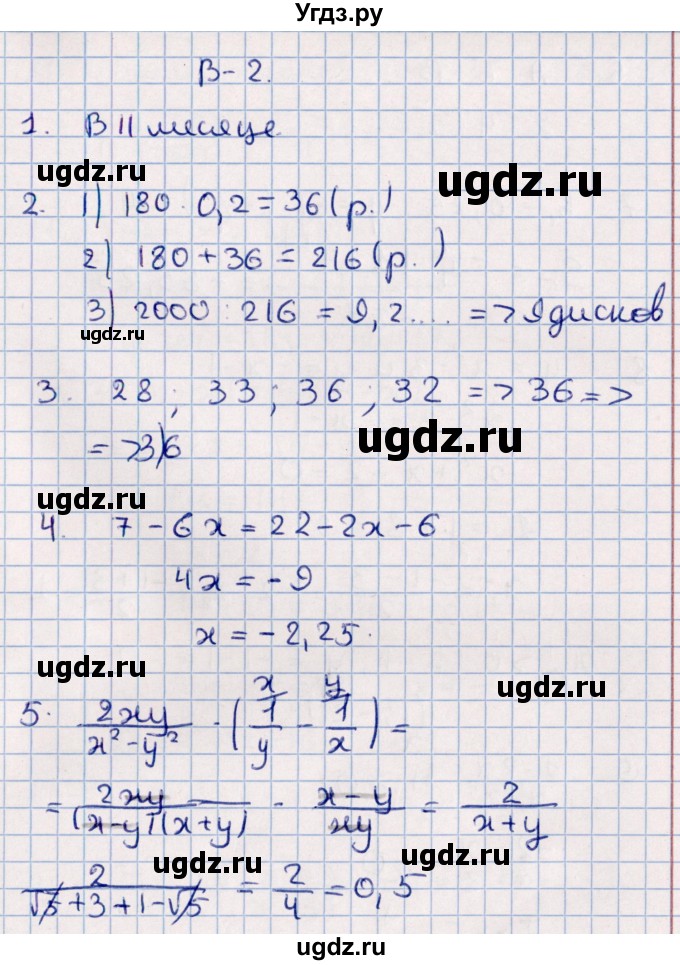 Угдз.ру
В-2.
1. В II месяце
ugdz.ru
ugdz.ru
2. 1) 180 · 0,2 = 36 (р.)
2) 180 + 36 = 216 (р.)
ugdz.ru
3) 2000 : 216 = 9,2.... => 9 дисков
3. 28 ; 33 ; 36 ; 32 => 36 =>
ugdz.ru
=> 3) 6
ugdz.ru
4. 7 - 6x = 22 - 2x - 6
4x = -9
x = -2,25.
ugdz.ru
ugdz.ru
5. 2xy / (x² - y²) · (1/y - 1/x) =
x y
= 2xy / ((x-y)(x+y)) · (x-y)/xy = 2/(x+y)
ugdz.ru
ugdz.ru
2/(√5+3+1-√5) = 2/4 = 0,5
ugdz.ru